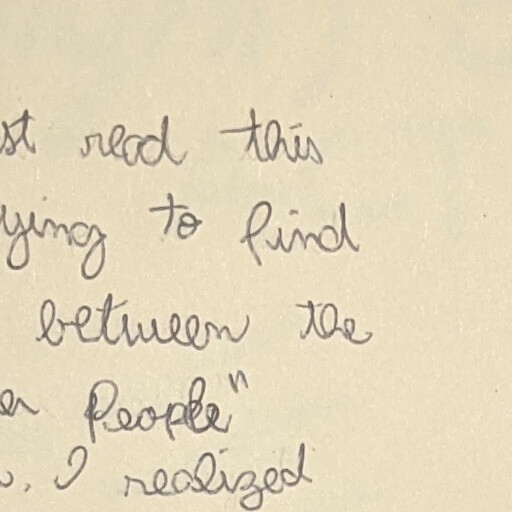 st read this
ying to find
between the
en People"
. I realized